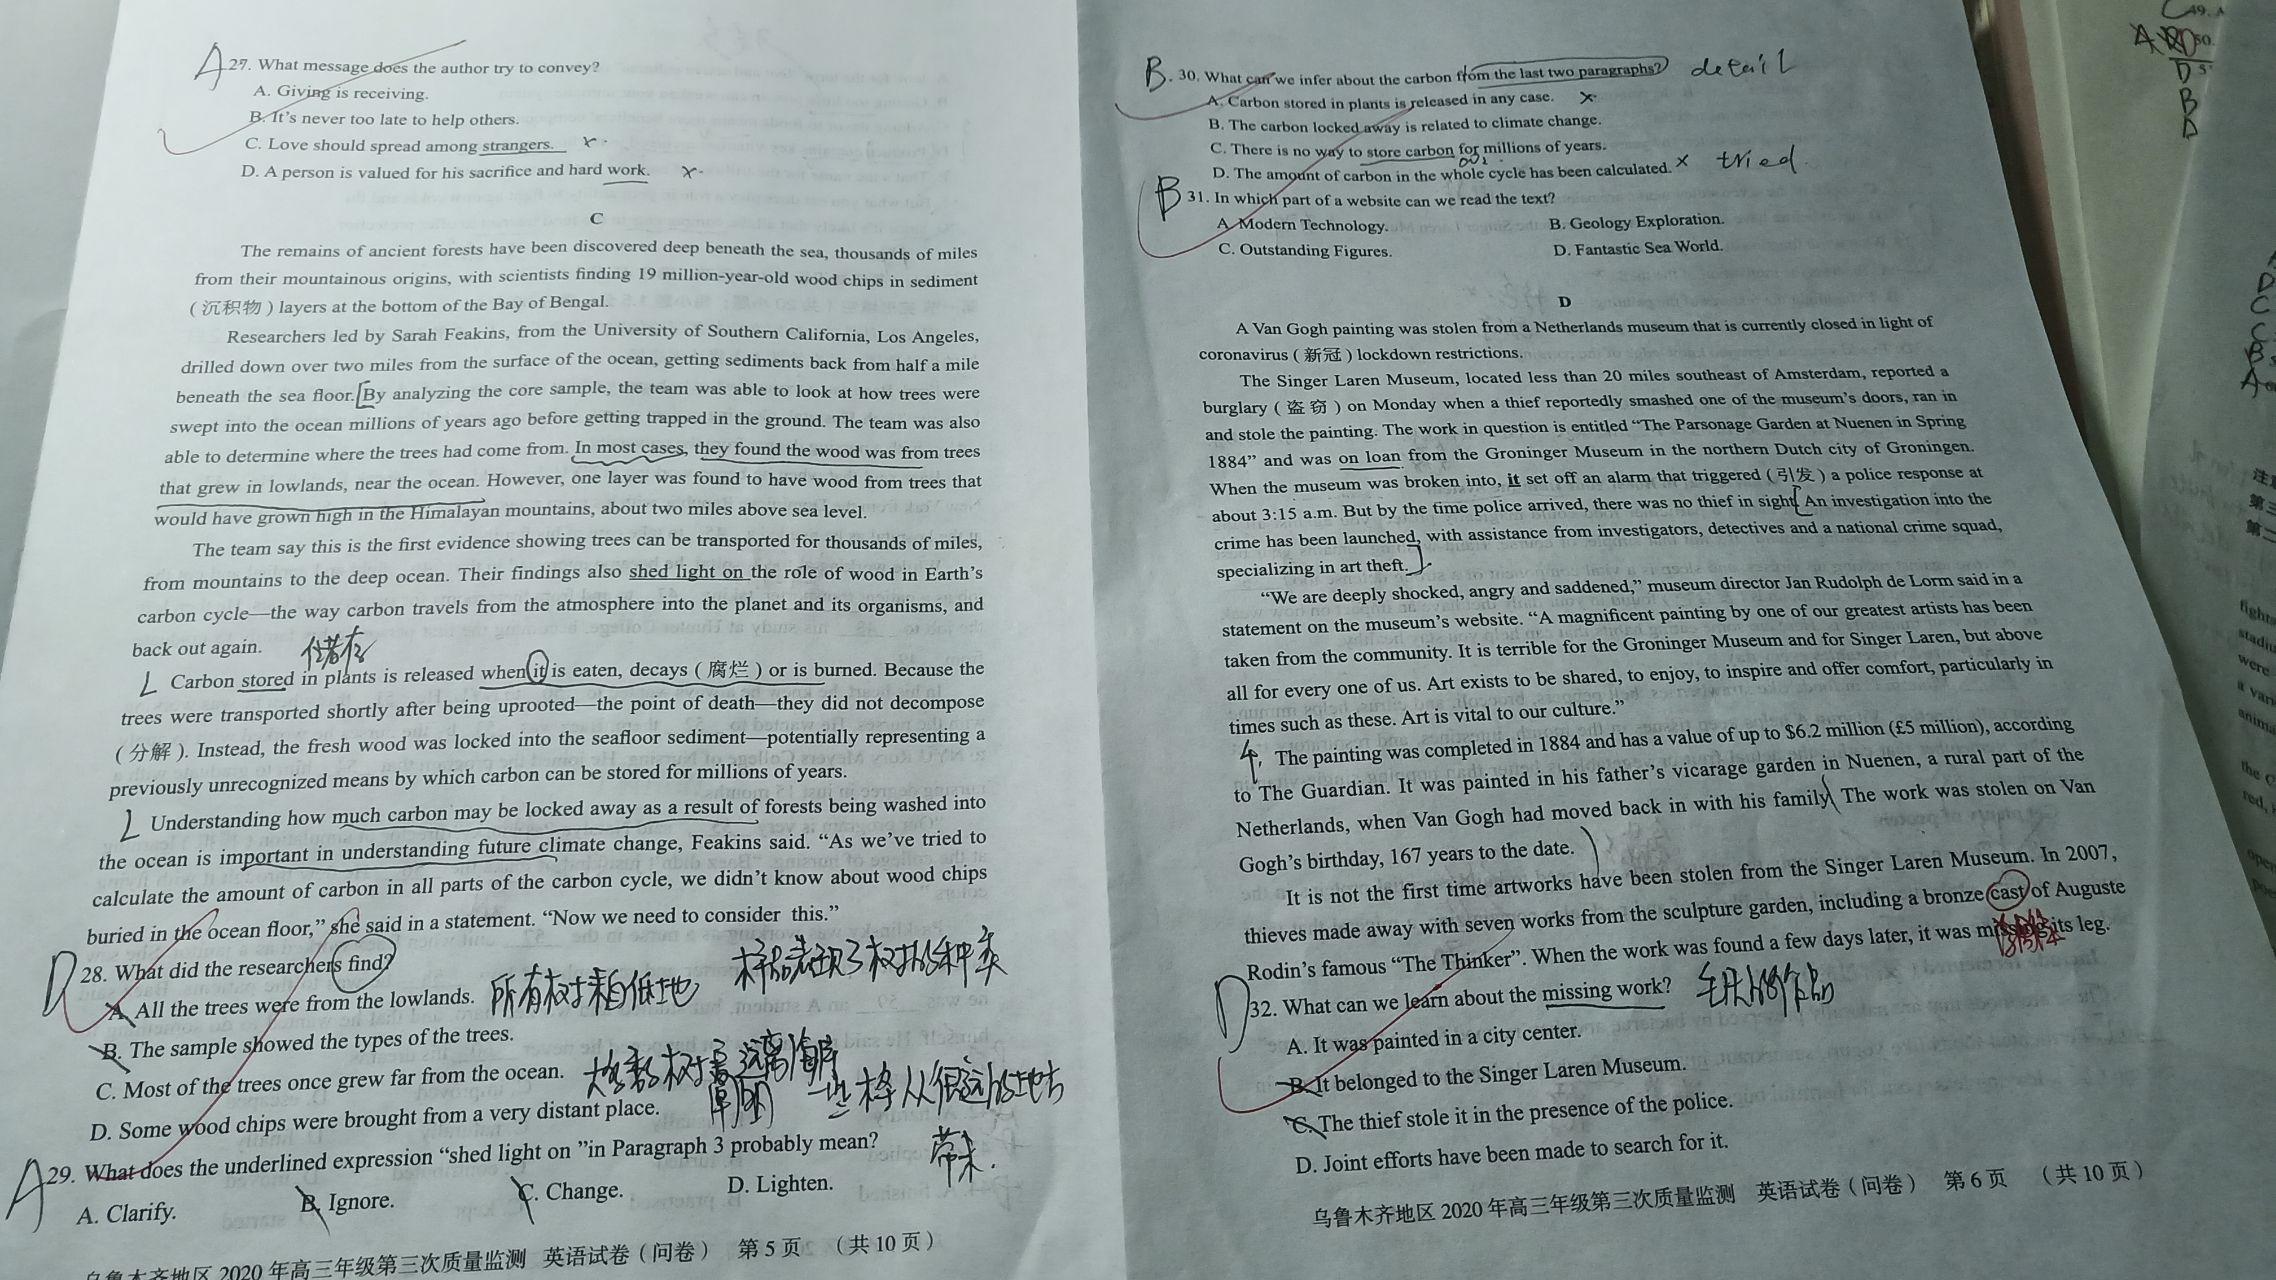 A 27. What message does the author try to convey?
A. Giving is receiving.
B. It's never too late to help others.
C. Love should spread among strangers. x
D. A person is valued for his sacrifice and hard work. x
C
The remains of ancient forests have been discovered deep beneath the sea, thousands of miles
from their mountainous origins, with scientists finding 19 million-year-old wood chips in sediment
(沉积物) layers at the bottom of the Bay of Bengal.
Researchers led by Sarah Feakins, from the University of Southern California, Los Angeles,
drilled down over two miles from the surface of the ocean, getting sediments back from half a mile
beneath the sea floor. [By analyzing the core sample, the team was able to look at how trees were
swept into the ocean millions of years ago before getting trapped in the ground. The team was also
able to determine where the trees had come from. In most cases, they found the wood was from trees
that grew in lowlands, near the ocean. However, one layer was found to have wood from trees that
would have grown high in the Himalayan mountains, about two miles above sea level.
The team say this is the first evidence showing trees can be transported for thousands of miles,
from mountains to the deep ocean. Their findings also shed light on the role of wood in Earth's
carbon cycle—the way carbon travels from the atmosphere into the planet and its organisms, and
back out again.
储存
Carbon stored in plants is released when it is eaten, decays (腐烂) or is burned. Because the
trees were transported shortly after being uprooted—the point of death—they did not decompose
(分解). Instead, the fresh wood was locked into the seafloor sediment—potentially representing a
previously unrecognized means by which carbon can be stored for millions of years.
Understanding how much carbon may be locked away as a result of forests being washed into
the ocean is important in understanding future climate change, Feakins said. "As we've tried to
calculate the amount of carbon in all parts of the carbon cycle, we didn't know about wood chips
buried in the ocean floor," she said in a statement. "Now we need to consider this."
D 28. What did the researchers find?
样品表现了树的种类
A. All the trees were from the lowlands. 所有树来自低地
B. The sample showed the types of the trees.
C. Most of the trees once grew far from the ocean. 大多数树是远离海岸
D. Some wood chips were brought from a very distant place. 一些木屑从很远的地方
带来.
A 29. What does the underlined expression "shed light on "in Paragraph 3 probably mean?
A. Clarify. B. Ignore. C. Change. D. Lighten.
乌鲁木齐地区 2020 年高三年级第三次质量监测 英语试卷(问卷) 第 5 页 (共 10 页)
B. 30. What can we infer about the carbon from the last two paragraphs? detail
A. Carbon stored in plants is released in any case. x
B. The carbon locked away is related to climate change.
C. There is no way to store carbon for millions of years.
D. The amount of carbon in the whole cycle has been calculated. x tried
B 31. In which part of a website can we read the text?
A. Modern Technology. B. Geology Exploration.
C. Outstanding Figures. D. Fantastic Sea World.
D
A Van Gogh painting was stolen from a Netherlands museum that is currently closed in light of
coronavirus (新冠) lockdown restrictions.
The Singer Laren Museum, located less than 20 miles southeast of Amsterdam, reported a
burglary (盗窃) on Monday when a thief reportedly smashed one of the museum's doors, ran in
and stole the painting. The work in question is entitled "The Parsonage Garden at Nuenen in Spring
1884" and was on loan from the Groninger Museum in the northern Dutch city of Groningen.
When the museum was broken into, it set off an alarm that triggered (引发) a police response at
about 3:15 a.m. But by the time police arrived, there was no thief in sight. [An investigation into the
crime has been launched, with assistance from investigators, detectives and a national crime squad,
specializing in art theft.]
"We are deeply shocked, angry and saddened," museum director Jan Rudolph de Lorm said in a
statement on the museum's website. "A magnificent painting by one of our greatest artists has been
taken from the community. It is terrible for the Groninger Museum and for Singer Laren, but above
all for every one of us. Art exists to be shared, to enjoy, to inspire and offer comfort, particularly in
times such as these. Art is vital to our culture."
4. The painting was completed in 1884 and has a value of up to $6.2 million (£5 million), according
to The Guardian. It was painted in his father's vicarage garden in Nuenen, a rural part of the
Netherlands, when Van Gogh had moved back in with his family. (The work was stolen on Van
Gogh's birthday, 167 years to the date. )
It is not the first time artworks have been stolen from the Singer Laren Museum. In 2007,
thieves made away with seven works from the sculpture garden, including a bronze cast of Auguste
Rodin's famous "The Thinker". When the work was found a few days later, it was missing its leg.
D 32. What can we learn about the missing work?
A. It was painted in a city center.
B. It belonged to the Singer Laren Museum.
C. The thief stole it in the presence of the police.
D. Joint efforts have been made to search for it.
乌鲁木齐地区 2020 年高三年级第三次质量监测 英语试卷(问卷) 第 6 页 (共 10 页)